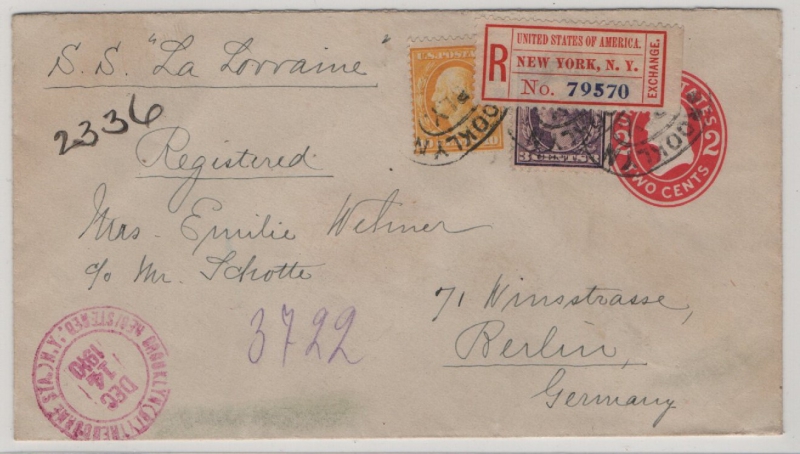 S. S. "La Lorraine"
U.S. POSTAGE
R
UNITED STATES OF AMERICA.
NEW YORK, N. Y.
No. 79570
EXCHANGE.
2336
BROOKLYN
3 CENTS
2
TWO CENTS
2
Registered.
Mrs. Emilie Wehmer
c/o Mr. Schotte
3722
71 Winsstrasse,
Berlin,
Germany
DEC
14
1910
REGISTERED,